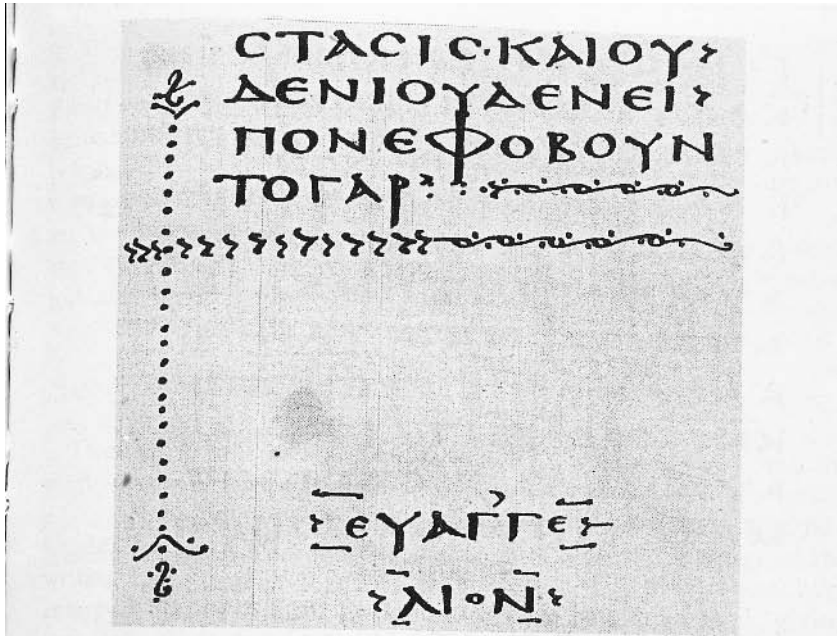 ϹΤΑϹΙϹ·ΚΑΙΟΥ
ΔΕΝΙΟΥΔΕΝΕΙ
ΠΟΝ·ΕΦΟΒΟΥΝ
ΤΟΓΑΡ:
ΕΥΑΓΓΕ
ΛΙΟΝ